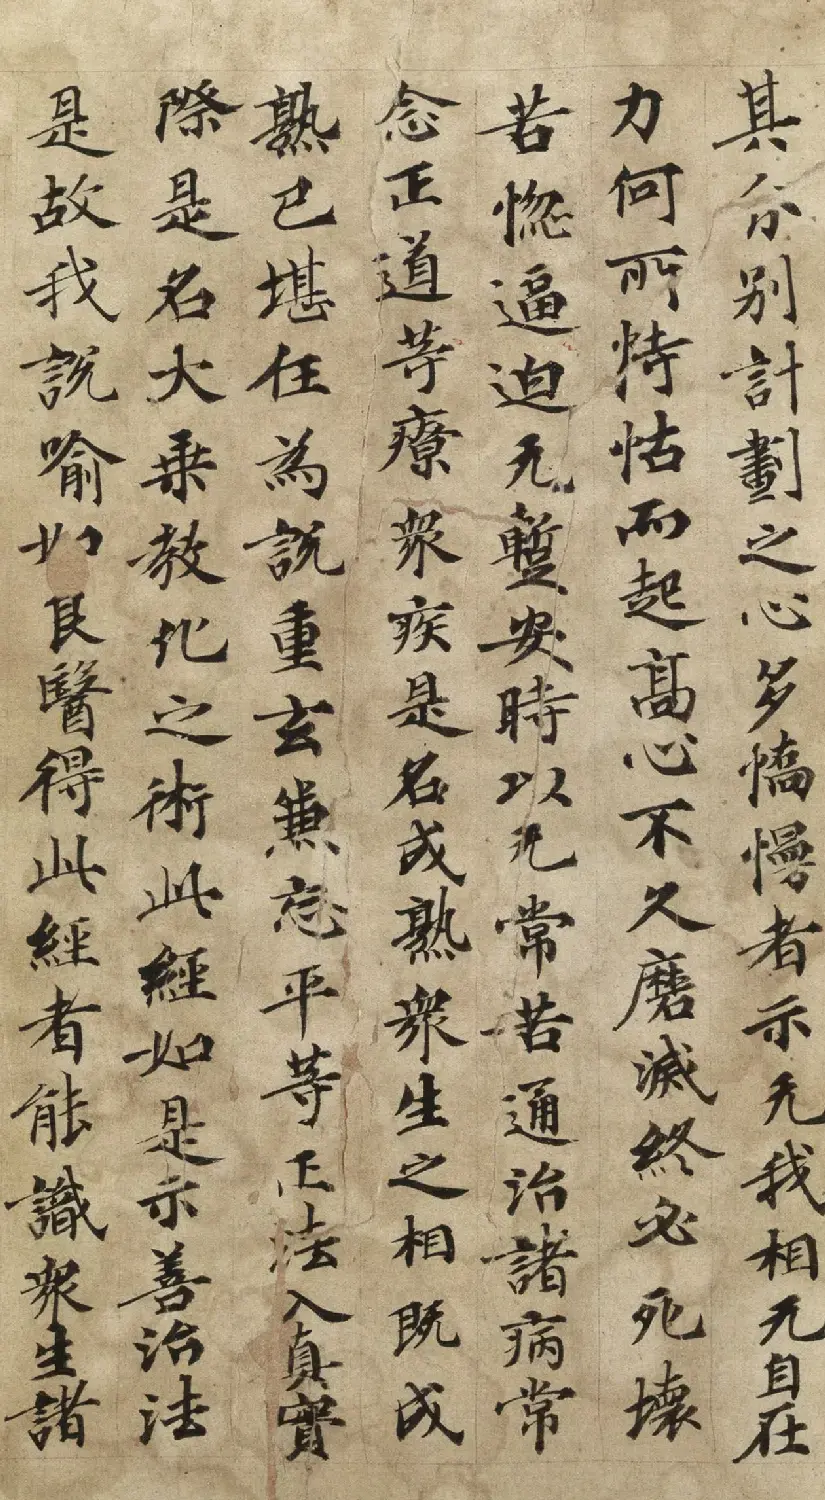 其分別計劃之心多憍慢者示无我相无自在
力何所恃怙而起高心不久磨滅終必死壞
苦惱逼迫无蹔安時以无常苦通治諸病常
念正道等療衆疾是名成熟衆生之相既成
熟已堪任為說重玄兼忘平等正法入真實
際是名大乗教化之術此經如是示善治法
是故我說喻如良醫得此經者能識衆生諸